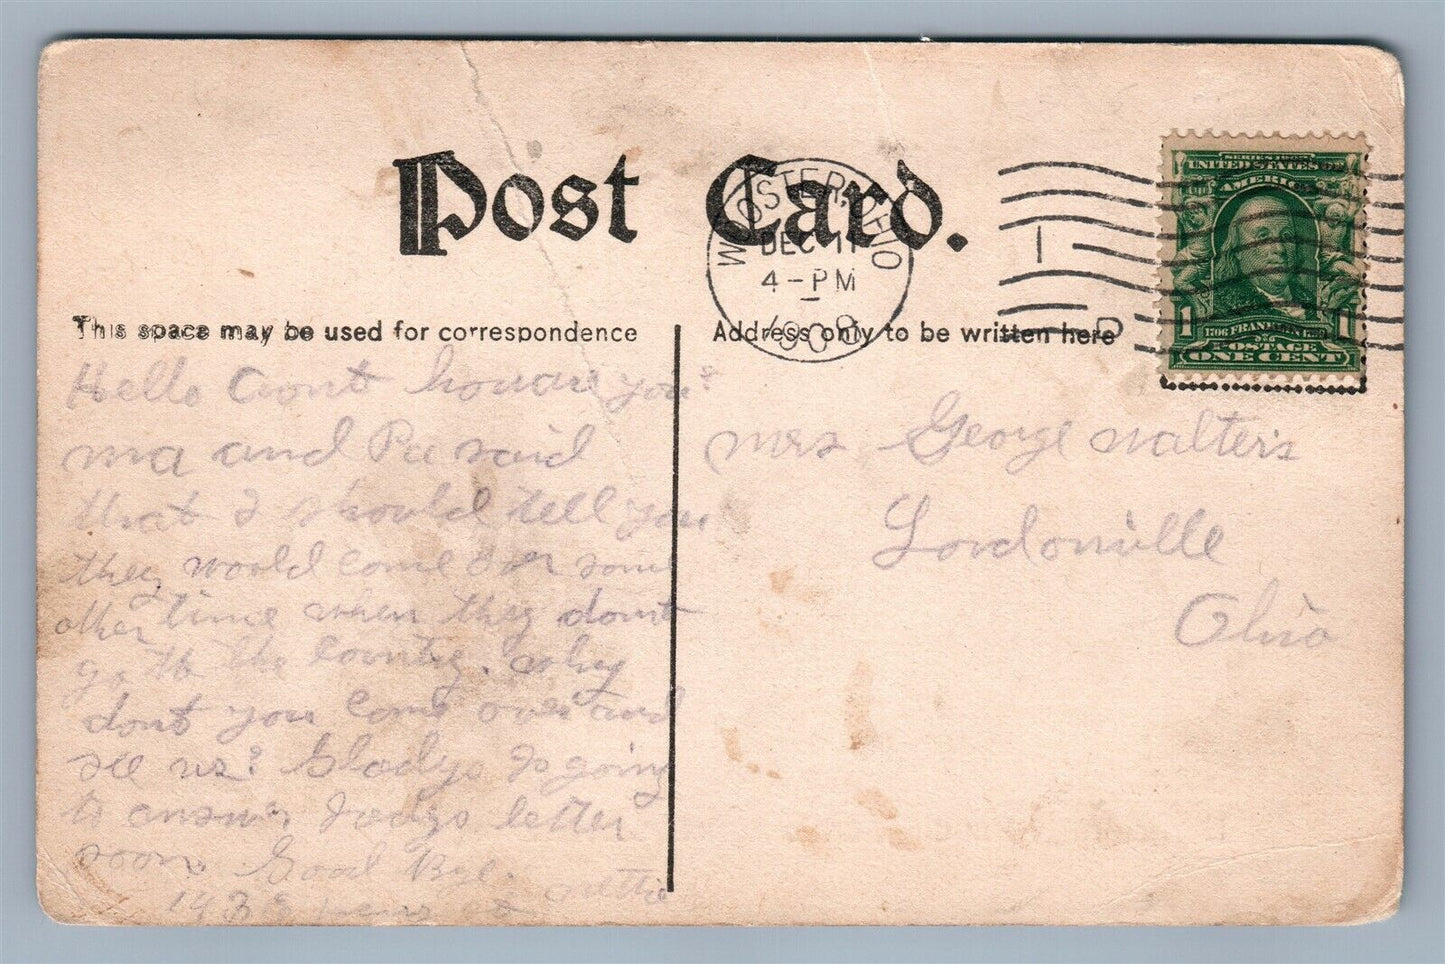 Post Card.
WOOSTER, OHIO
DEC 11
4-PM
1908
1
D
SERIES 1902
UNITED STATES OF
AMERICA
1 1
1706 FRANKLIN 1790
POSTAGE
ONE CENT
This space may be used for correspondence
Address only to be written here
Hello Aont how are you?
ma and Pa said
that I should tell you
they would come over some
other time when they dont
go to the country. why
dont you come over and
see us? Gladys is going
to answer letter
soon. Good Bye.
Mrs George Walters
Lordonville
Ohio